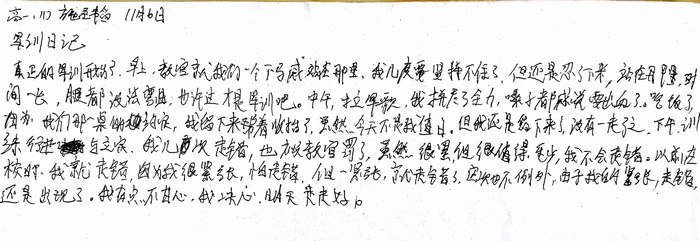 高一.(1) 11月6日
军训日记
真正的军训开始了.早上.教官就给我们一个下马威.站在那里.我几度要坚持不住了.但还是忍了下来,站在那里,时
间一长,腿都没法弯曲,也许这才是军训吧。中午,拉军歌,我拼尽了全力,嗓子都喊完了。吃饭了
因为我们那一桌的,我留下来帮着收拾了,虽然今天不是我值日.但我还是留下来了,没有一走了之.下午.训
练行进与立定.我几次走错,也被教官罚了,虽然很累但很值得.至少,我不会走错.以前在
校时.我就走错,因为我很紧张,怕走错,但一紧张,就走错了.这次也不例外,由于我的紧张,走错
还是出现了.我有点不甘心,我决心,明天走走好。